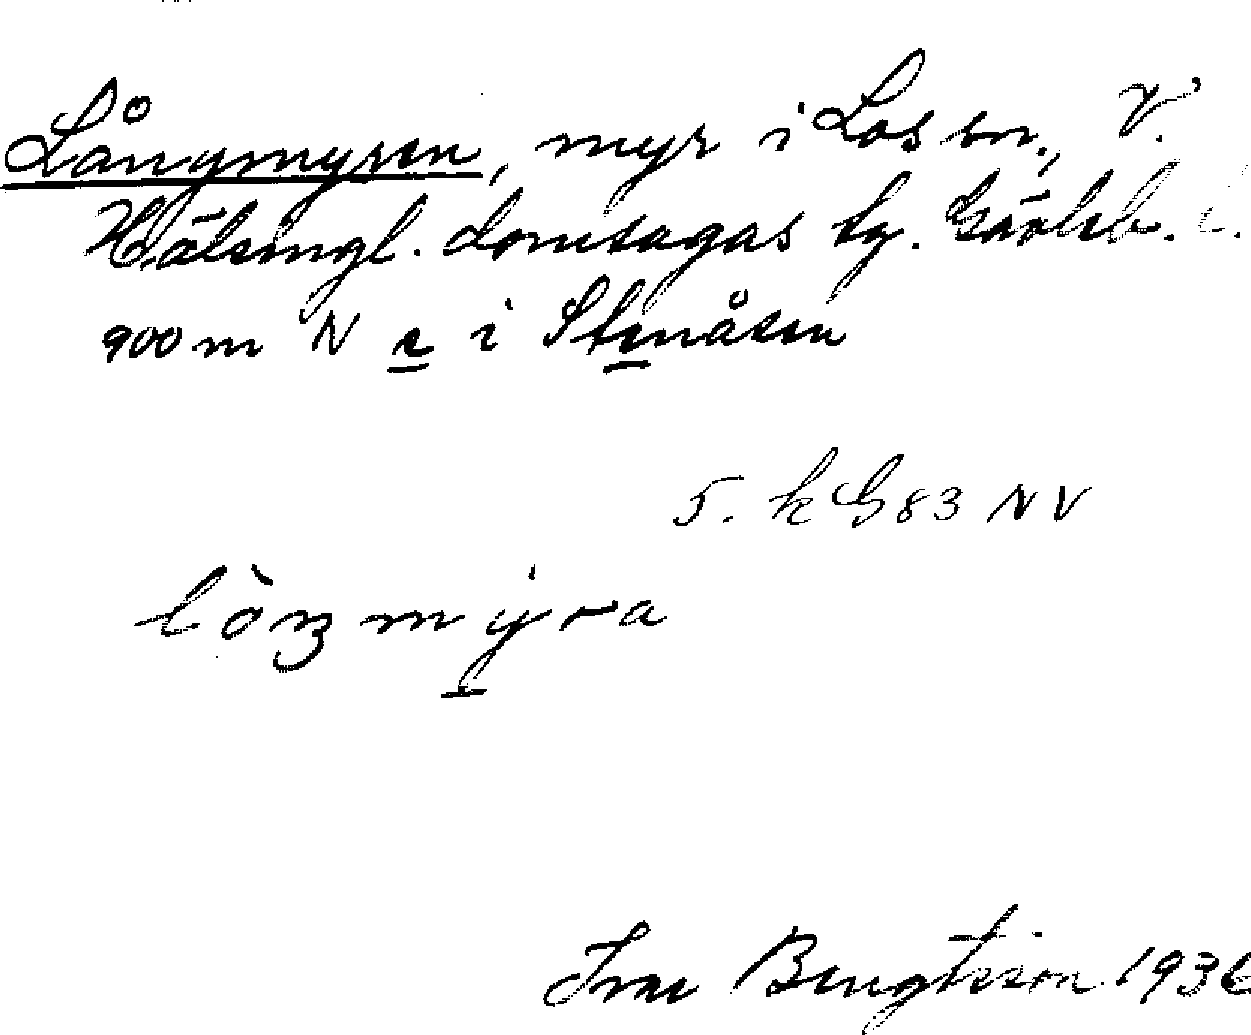 Långmyren, myr i Los sn., V.
Hälsingl. domsagas tg. Gävleb. l.
900 m N e i Stenåsen
5. k G83 NV
lòŋmýra
Ivar Bengtsson 1936